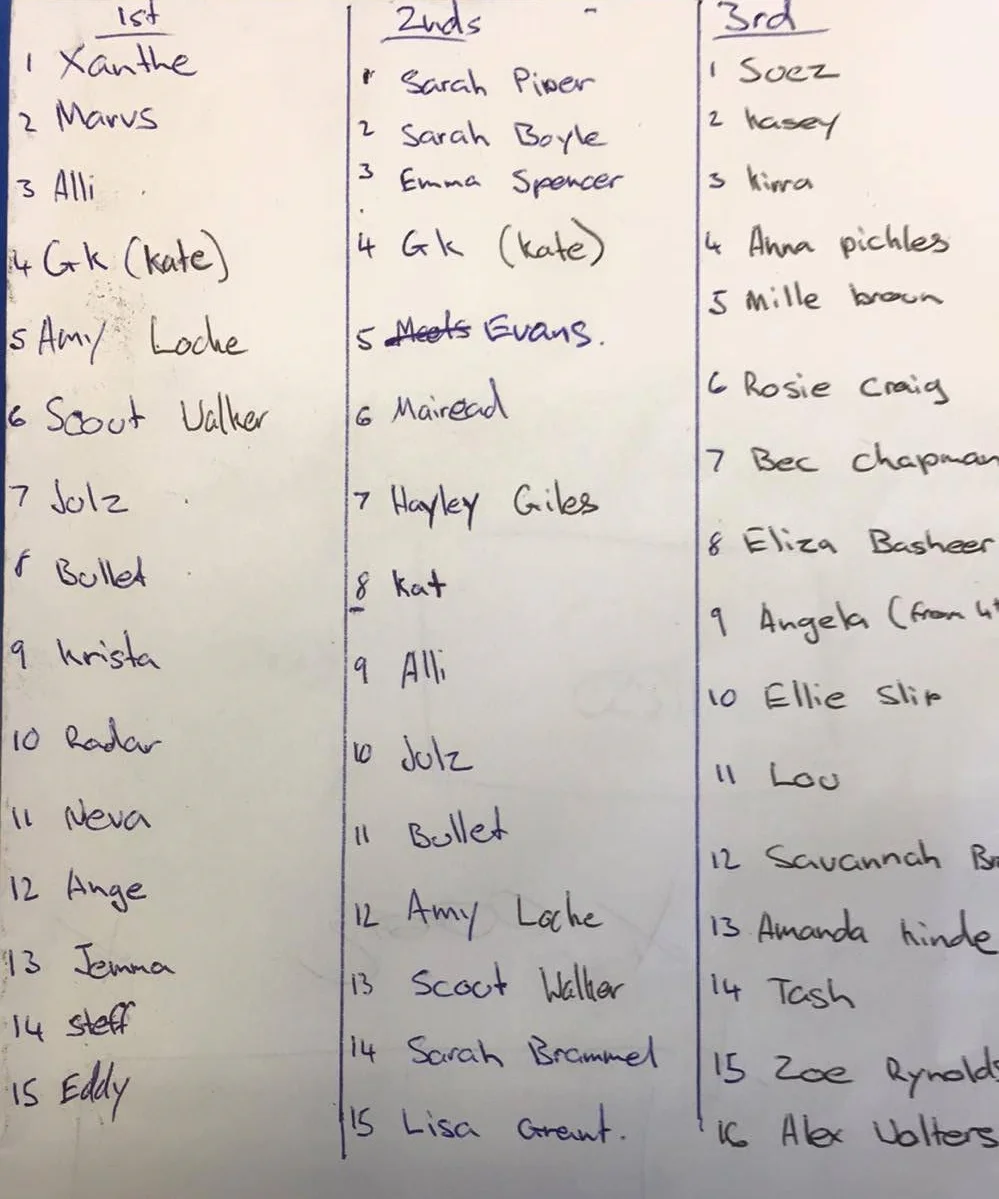 1st
1 Xanthe
2 Marvs
3 Alli
4 Gk (kate)
5 Amy Locke
6 Scout Walker
7 Julz
8 Bullet
9 Krista
10 Radar
11 Neva
12 Ange
13 Jemma
14 Steff
15 Eddy
2nds
1 Sarah Piper
2 Sarah Boyle
3 Emma Spencer
4 Gk (kate)
5 Meets Evans.
6 Mairead
7 Hayley Giles
8 Kat
9 Alli
10 Julz
11 Bullet
12 Amy Locke
13 Scout Walker
14 Sarah Brammel
15 Lisa Grant.
3rd
1 Suez
2 kasey
3 kirra
4 Anna pichles
5 Mille brown
6 Rosie Craig
7 Bec Chapman
8 Eliza Basheer
9 Angela (from 4t
10 Ellie Slip
11 Lou
12 Savannah Br
13 Amanda hinde
14 Tash
15 Zoe Rynolds
16 Alex Wolters